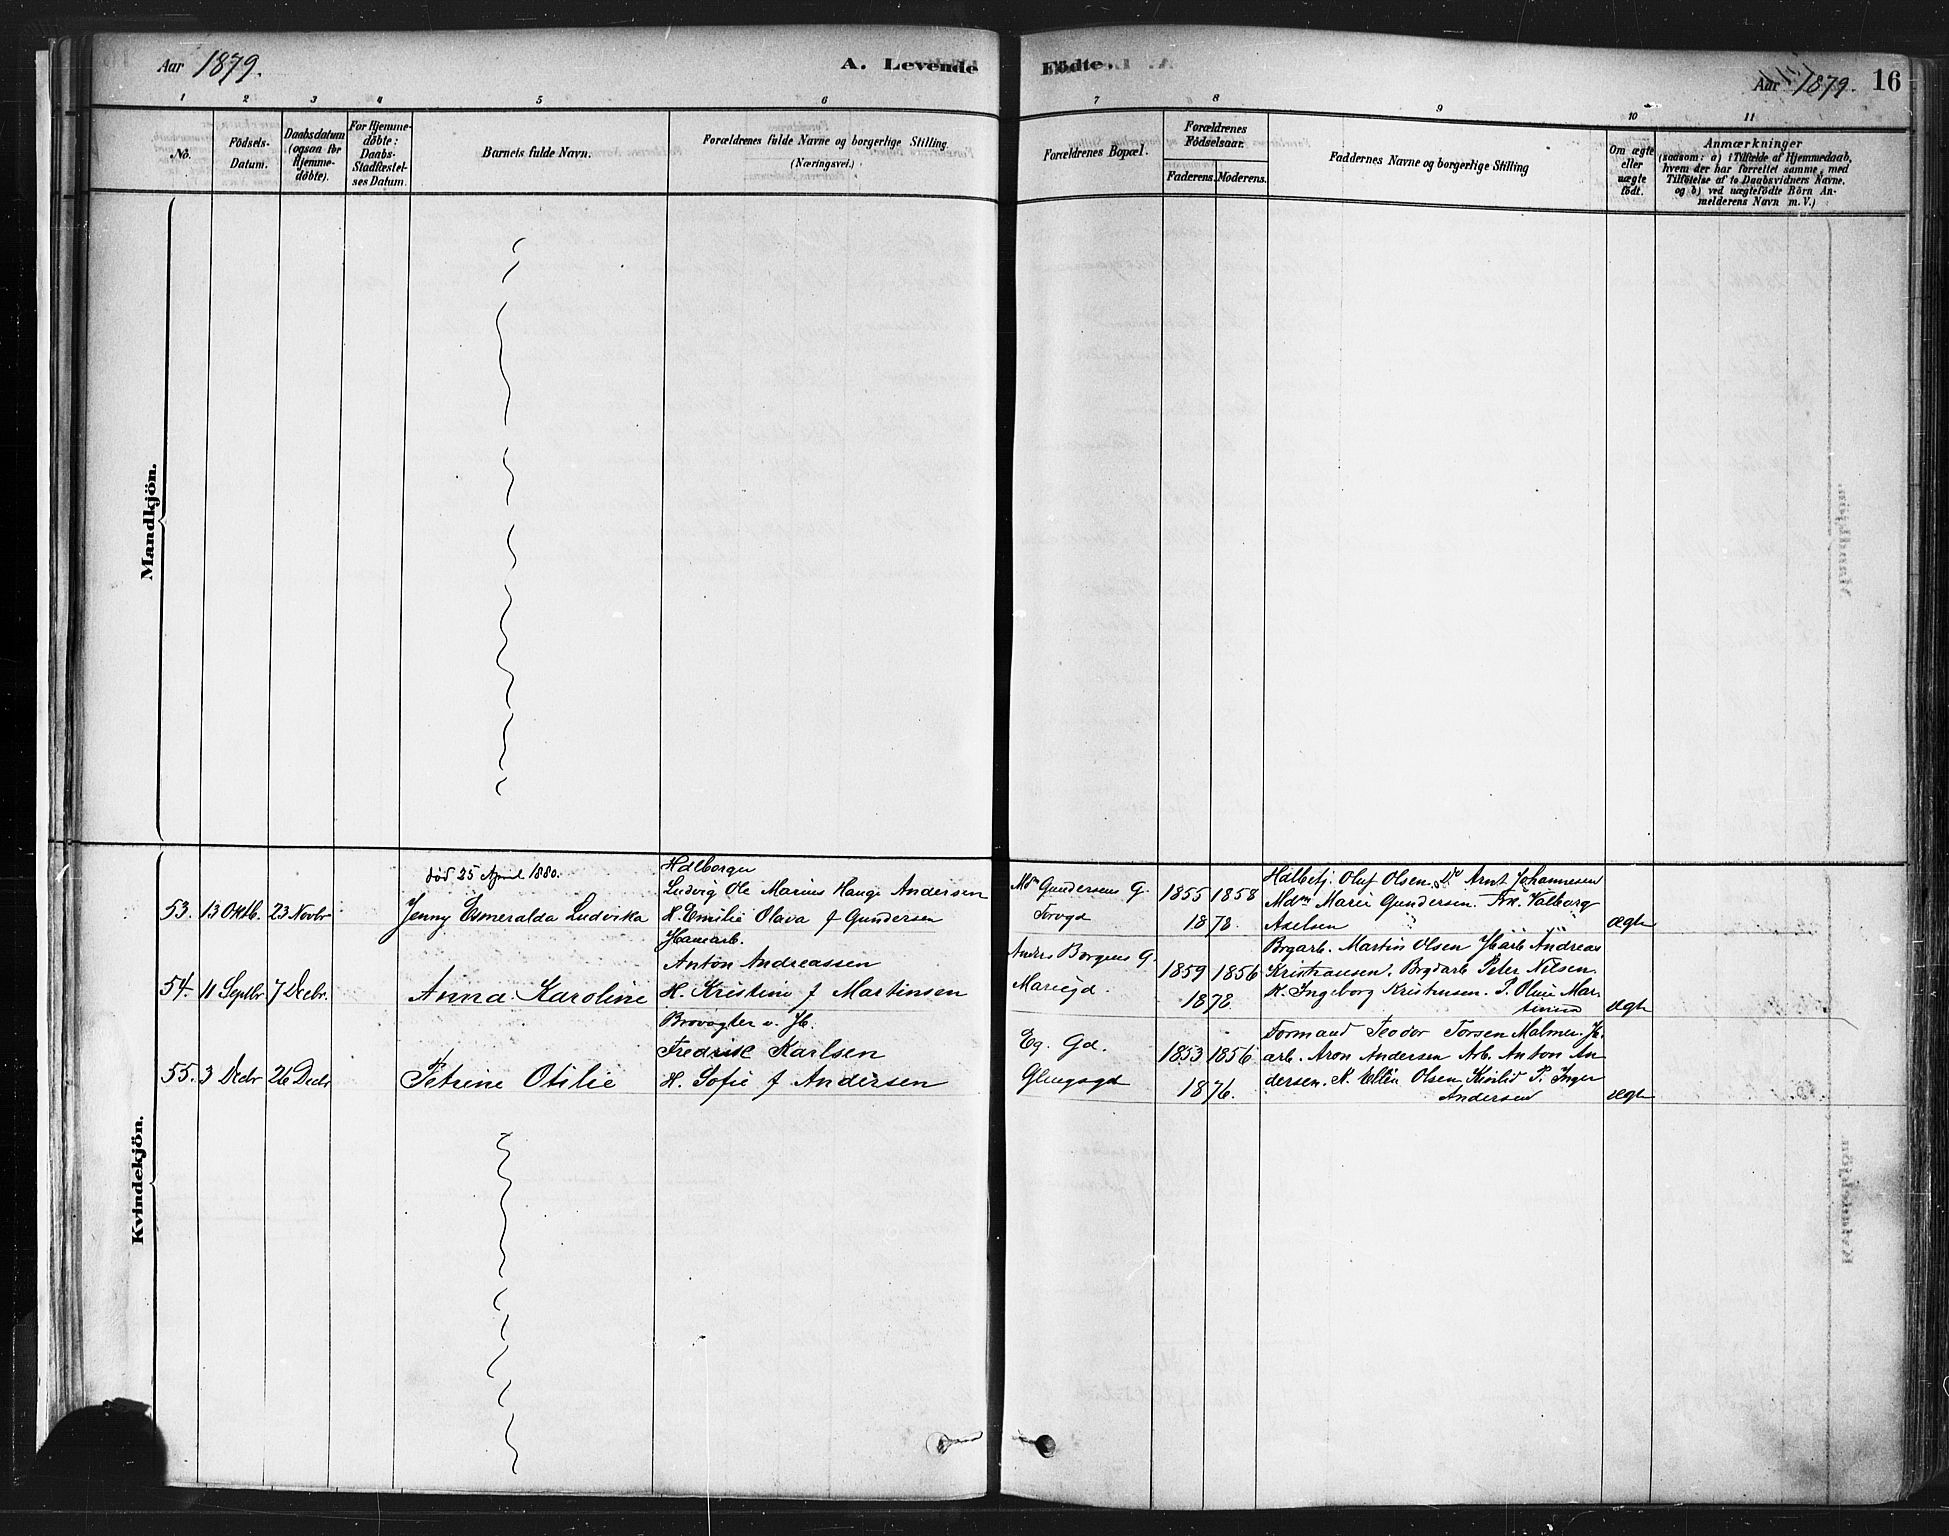 Aar 1879.
A. Levende Födte.
Aar 1879. 16
1 2 3 4 5 6 7 8 9 10 11
No.
Födsels-
Datum.
Daabsdatum
(ogsaa for
Hjemme-
döbte).
For Hjemme-
döbte:
Daabs-
Stadfæstel-
ses Datum.
Barnets fulde Navn.
Forældrenes fulde Navne og borgerlige Stilling
(Næringsvei.)
Forældrenes Bopæl.
Forældrenes
Födselsaar.
Faderens. Moderens.
Faddernes Navne og borgerlige Stilling
Om ægte
eller
uægte
födt.
Anmærkninger
(saasom: a) i Tilfælde af Hjemmedaab,
hvem der har forrettet samme, med
Tilföielse af to Daabsvidners Navne,
og b) ved uægtefödte Börn An-
melderens Navn m. V.)
Mandkjön.
Kvindekjön.
död 25 April 1880.
53. 13 Oktb. 23 Novbr
Jenny Esmeralda Ludvika
Hdlborger
Ludvig Ole Marius Hauge Andersen
H. Emilie Olava f Gundersen
Mdm Gundersens G.
Torvgd
1855 1858
1878.
Hdlbetj. Oluf Olsen. Do Arnt Johannesen
Mdm Marie Gundersen. Frk. Valborg
Axelsen
ægte
54. 11 Septbr. 7 Decbr.
Anna Karoline
Havnearb.
Anton Andreassen
H. Kristine f Martinsen
Anders Borgens G.
Mariegd.
1859 1856
1878.
Brgarb. Martin Olsen Harb Andreas
Kristiansen. Brgdarb Peter Nilsen.
K. Ingeborg Kristensen. P. Oline Mar-
tinsen
ægte
55. 3 Decbr 26 Decbr
Petrine Otilie
Brovogter v. Jb.
Fredrik Karlsen
H. Sofie f Andersen
Eg. Gd.
Glengsgd
1853 1856
1876.
Formand Teodor Torsen Malmer. H.
arb. Aron Andersen Arb. Anton An-
dersen. K. Ellen Olsen P. Inger
Andersen
ægte